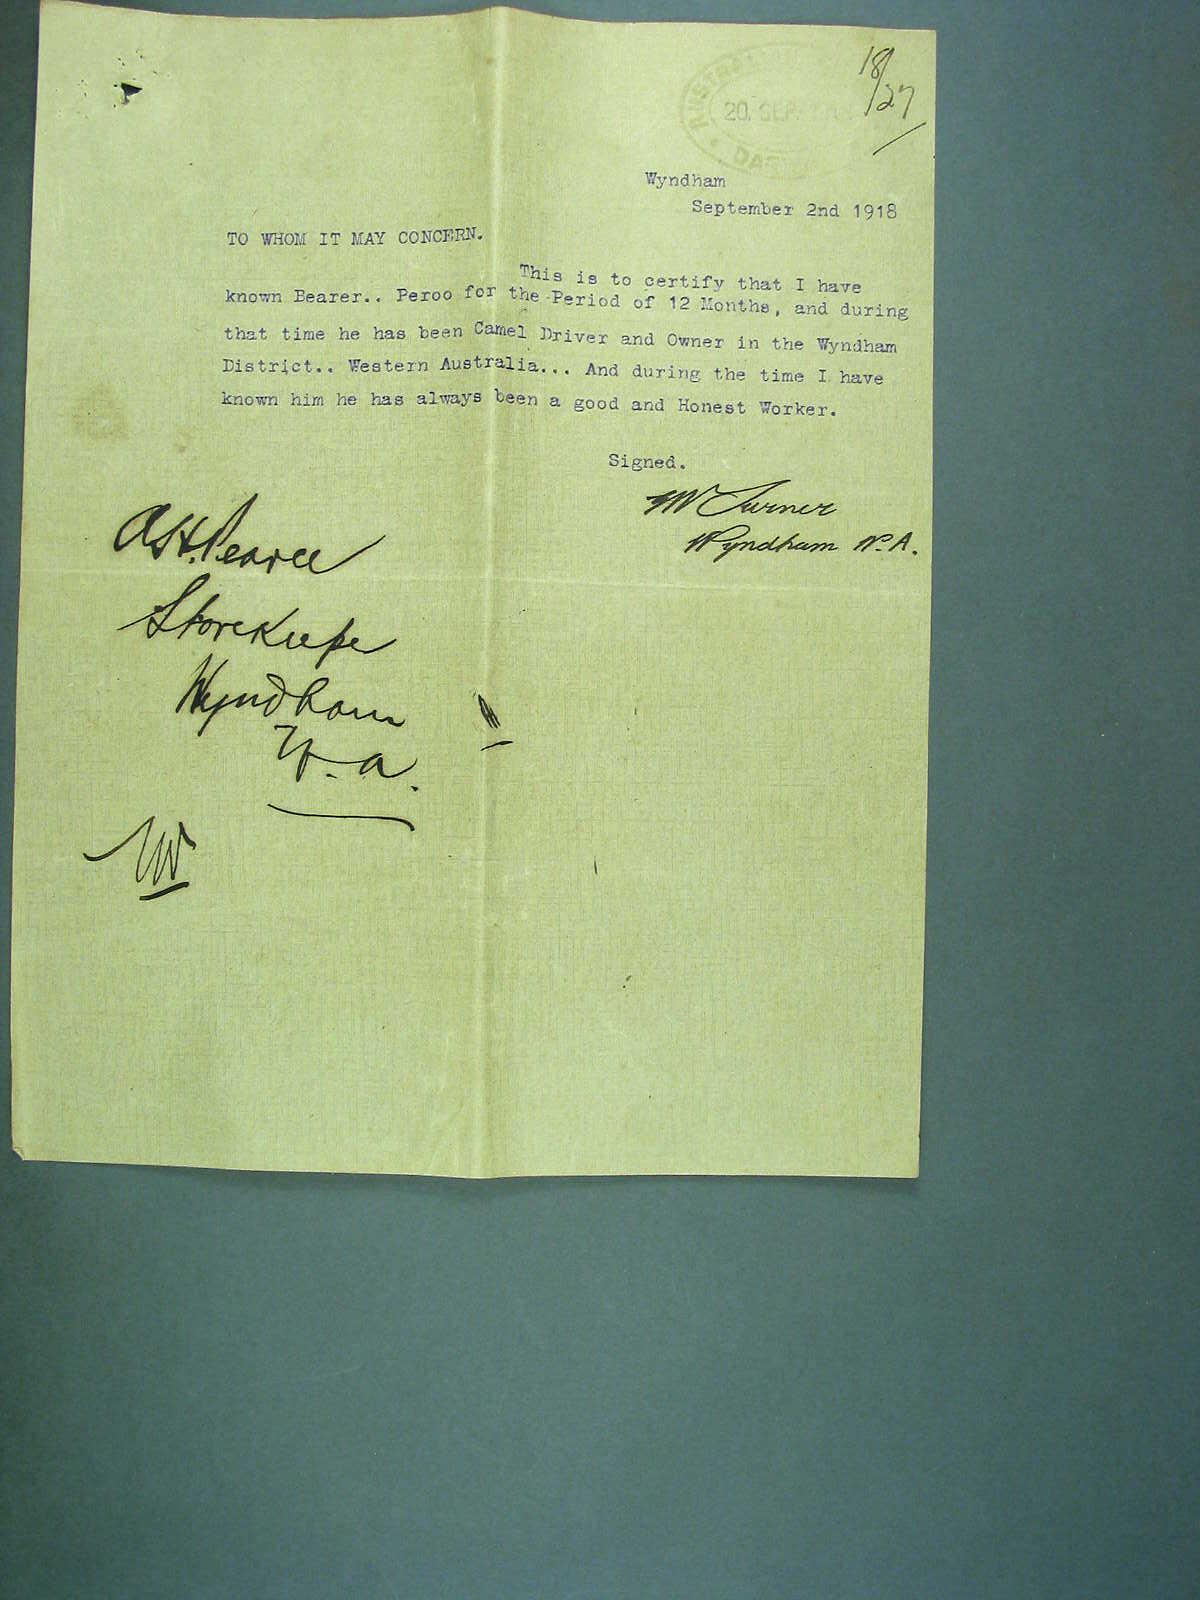 18/27
20. SEP.
Wyndham
September 2nd 1918
TO WHOM IT MAY CONCERN.
This is to certify that I have
known Bearer.. Peroo for the Period of 12 Months, and during
that time he has been Camel Driver and Owner in the Wyndham
District.. Western Australia... And during the time I have
known him he has always been a good and Honest Worker.
Signed.
Turner
Wyndham W.A.
Pearce
Storekeeper
Wyndham
W.A.